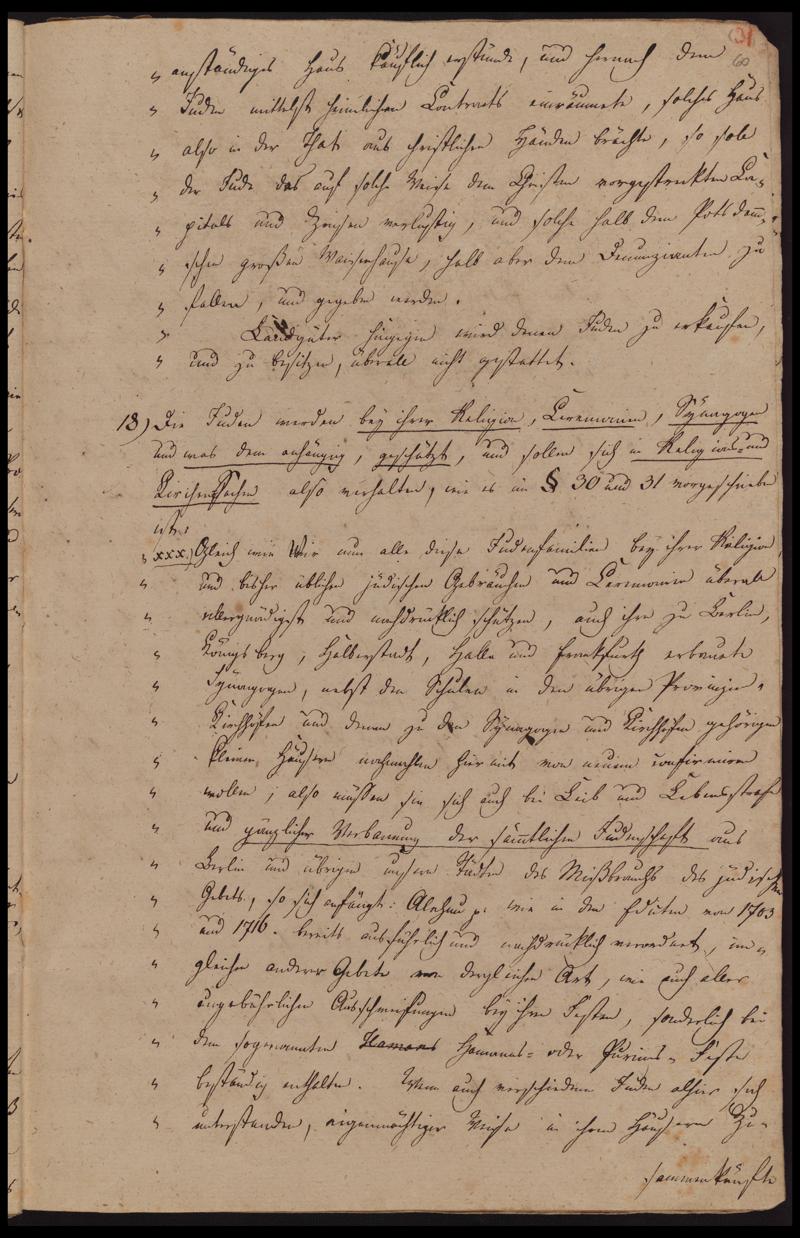 (31
60
„ anständiges Haus käuflich erstünde, und hernach dem
„ Juden mittelst heimlichen Contracts einräumete, solches Haus
„ also in der That aus christlichen Händen brächte, so solle
„ der Jude das auf solche Weise dem Christen vorgestreckten Ca-
„ pitals und Zinsen verlustig, und solche halb dem Potsdamm-
„ schen großen Waisenhause, halb aber dem Denunzianten zu
„ fallen, und gegeben werden.
„ Landgüter hingegen wird denen Juden zu erkaufen,
„ und zu besitzen, überall nicht gestattet.
18) Die Juden werden bey ihrer Religion, Ceremonien, Synagogen
und was dem anhängig, geschützt, und sollen sich in Religions- und
Kirchen Sachen also verhalten, wie es im § 30 und 31 vorgeschrieben
ist:
„ xxx.) Gleich wie Wir nun alle diese Judenfamilien bey ihrer Religion
„ und bisher üblichen jüdischen Gebräuchen und Ceremonien überall
„ allergnädigst und nachdrücklich schützen, auch ihre zu Berlin,
„ Königsberg, Halberstadt, Halle und Frankfurth erbauete
„ Synagogen, nebst den Schulen in den übrigen Provinzien
„ Kirchhöfen und denen zu den Synagogen und Kirchhöfen gehörigen
„ kleinen Häusern nochmahlen hiermit von neuem confirmiren
„ wollen; also müssen sie sich auch bei Leib und Lebensstrafe
„ und gänzlicher Verbannung der sämtlichen Judenschaft aus
„ Berlin und übrigen unsern Städten des Mißbrauchs des jüdischen
„ Gebets, so sich anfängt: Alenu p. wie in den Edicten von 1703
„ und 1716. bereits ausführlich und nachdrücklich verordnet, im-
„ gleichen anderer Gebete von dergleichen Art, wie auch aller
„ ungebührlichen Ausschweifungen bey ihren Festen, sonderlich bei
„ dem sogenannten Hamans Hamanns- oder Purims- Feste
„ beständig enthalten. Wenn auch verschiedene Juden alhier sich
„ unterstanden, eigenmächtiger Weise in ihren Häusern Zu-
sammenkünfte